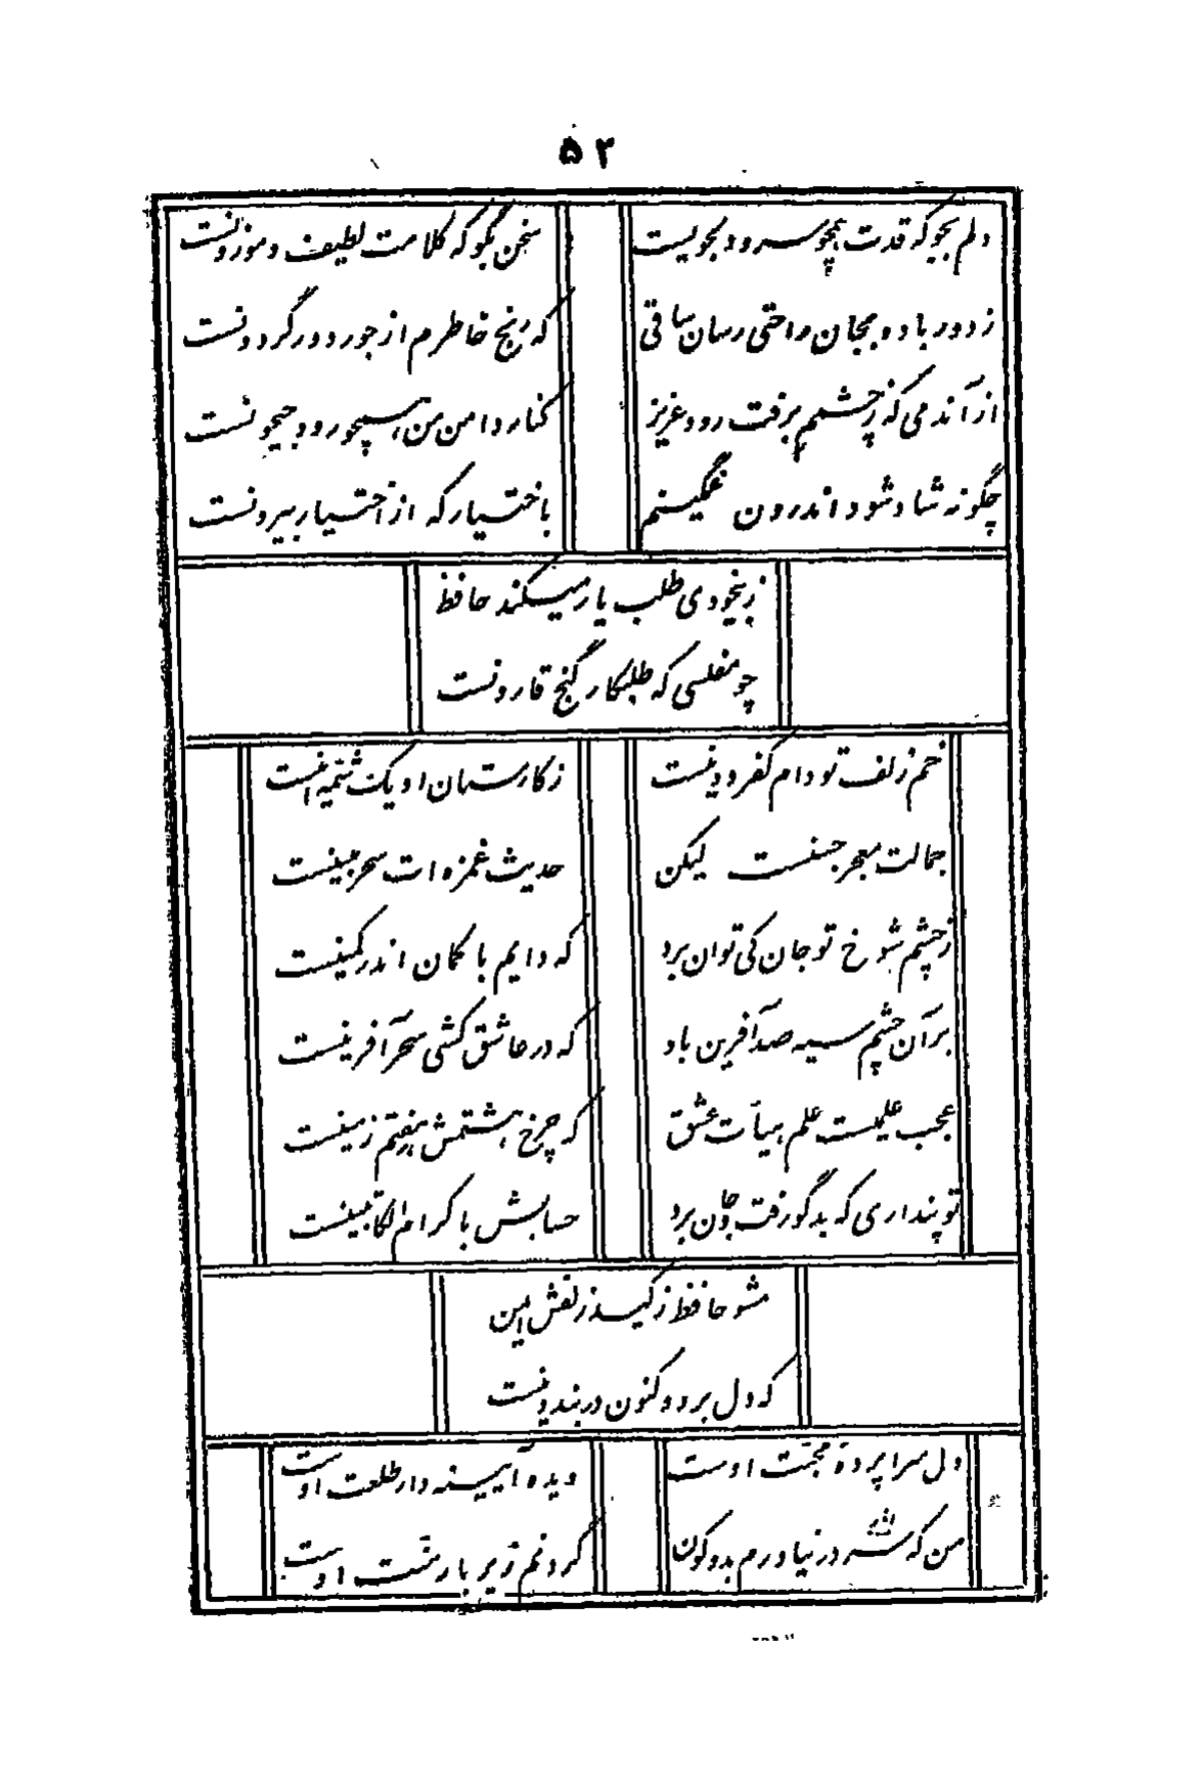 ۵۲
دلم بجو که قدت همچو سرو دلجویست
سخن بگو که کلامت لطیف و موزونست
ز دور باده بجان راحتی رسان ساقی
که رنج خاطرم از جور دور گردونست
از آندمی که ز چشمم برفت رود عزیز
کنار دامن من همچو رود جیحونست
چگونه شاد شود اندرون غمگینم
باختیار که از اختیار بیرونست
ز بیخودی طلب یار میکند حافظ
چو مفلسی که طلبکار گنج قارونست
خم زلف تو دام کفر و دینست
ز کارستان او یک شمه اینست
جمالت معجز حسنست لیکن
حدیث غمزه ات سحر مبینست
ز چشم شوخ تو جان کی توان برد
که دایم با کمان اندر کمینست
بر آن چشم سیه صد آفرین باد
که در عاشق کشی سحر آفرینست
عجب علمیست علم هیأت عشق
که چرخ هشتمش هفتم زمینست
تو پنداری که بدگو رفت و جان برد
حسابش با کرام الکاتبینست
مشو حافظ ز کید زلفش ایمن
که دل برد و کنون در بند دینست
دل سراپردهٔ محبت اوست
دیده آیینه دار طلعت اوست
من که سر در نیاورم بدو کون
گردنم زیر بار منت اوست